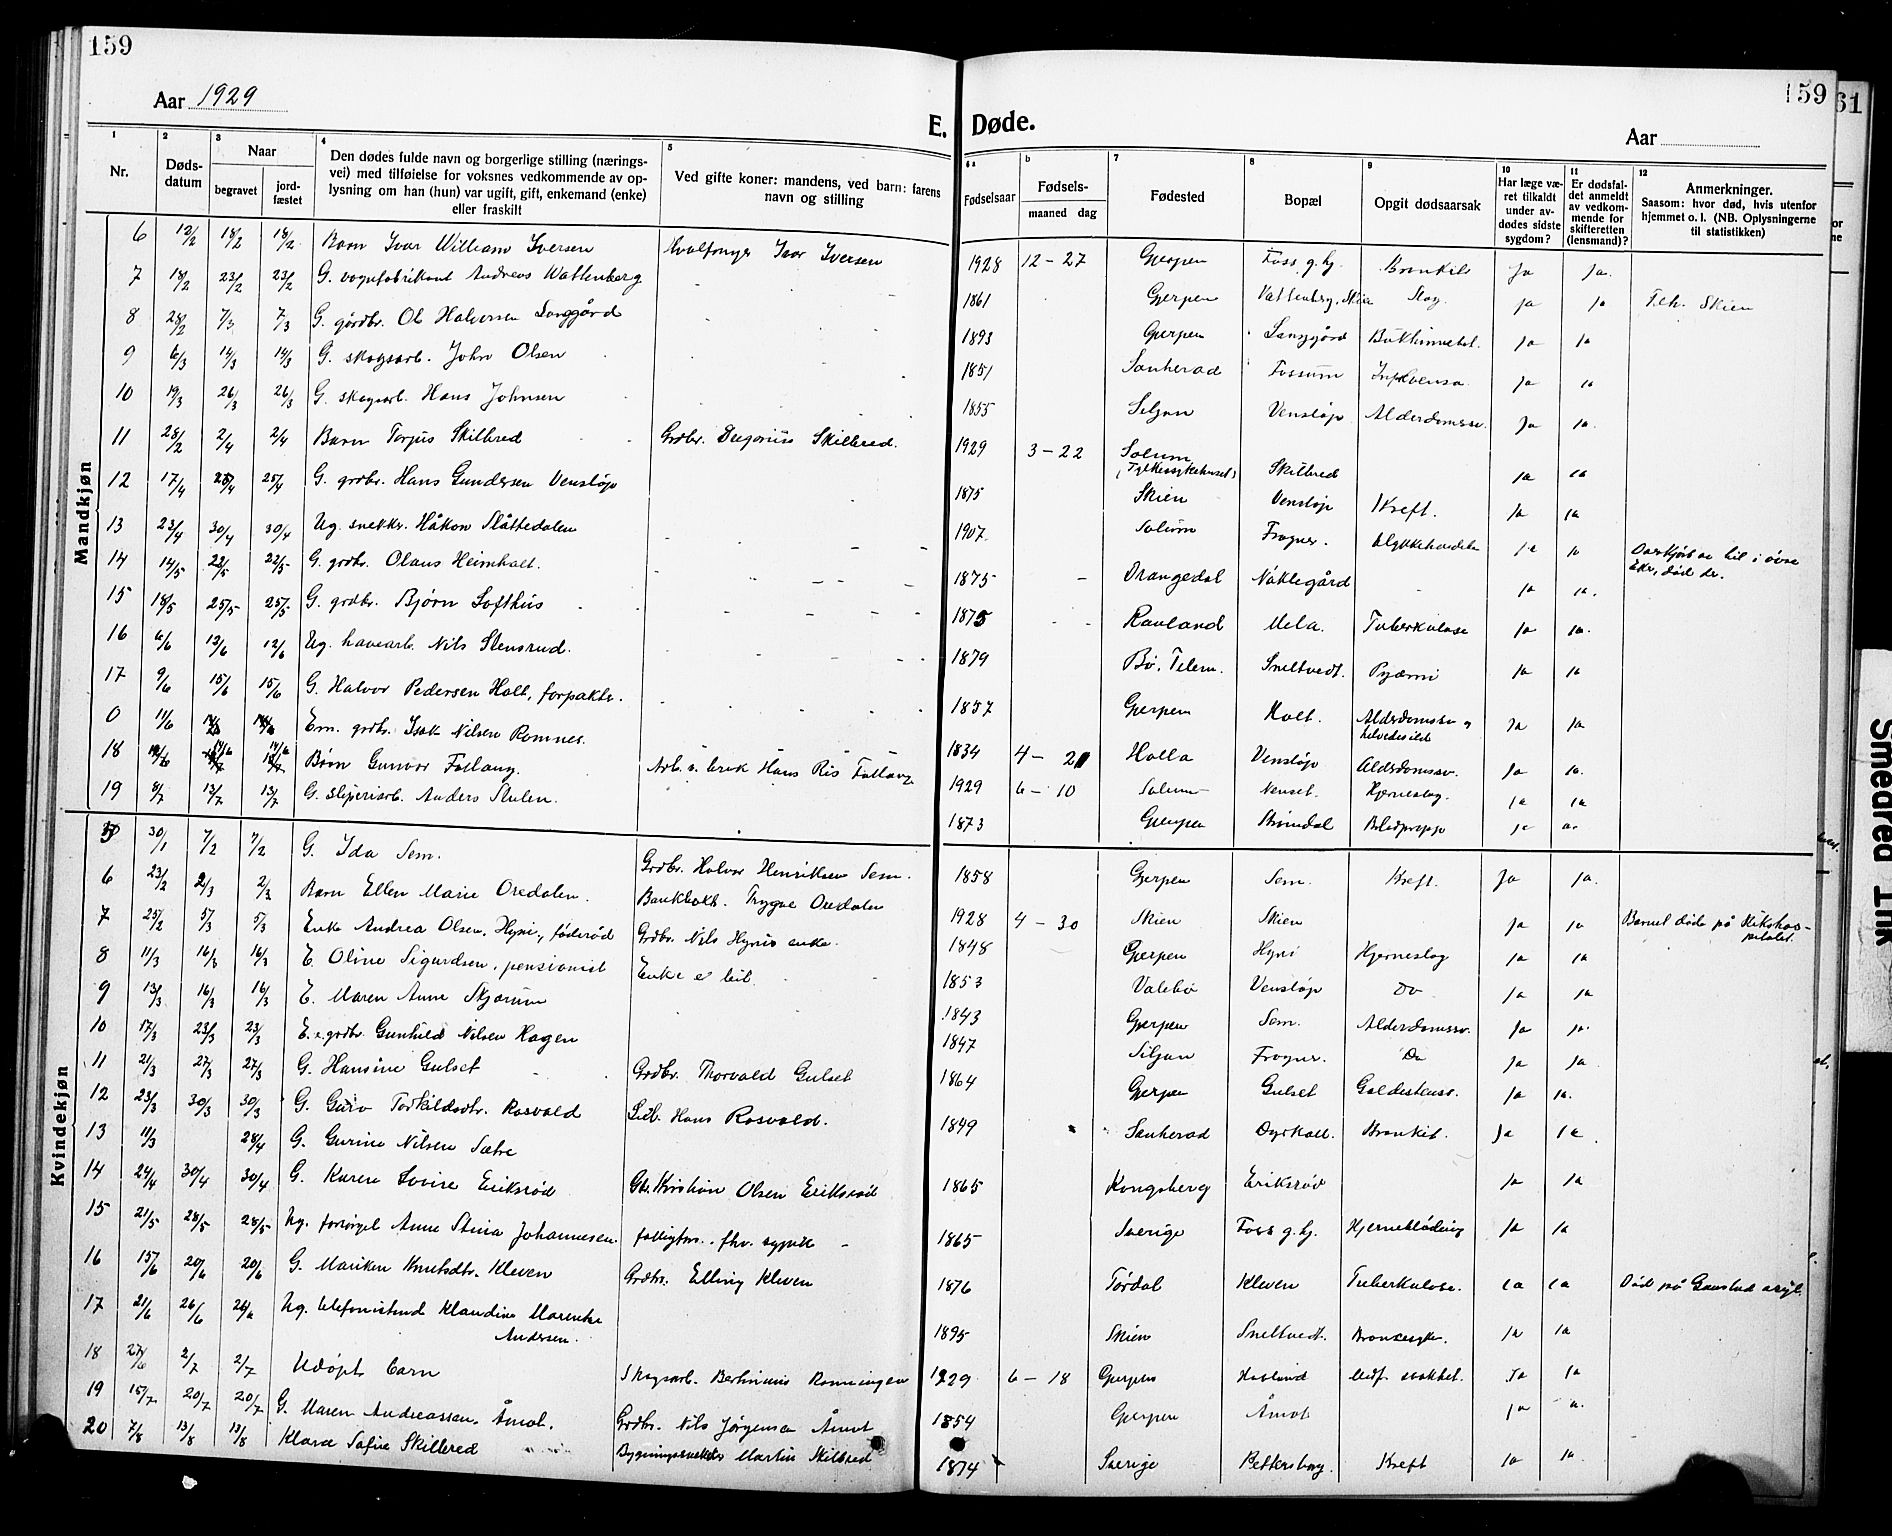 159
159
61
Aar 1929
E. Døde.
Aar
1 Nr.
2 Dødsdatum
3 Naar begravet jordfæstet
4 Den dødes fulde navn og borgerlige stilling (næringsvei) med tilføielse for voksnes vedkommende av oplysning om han (hun) var ugift, gift, enkemand (enke) eller fraskilt
5 Ved gifte koner: mandens, ved barn: farens navn og stilling
6 a Fødselsaar
b Fødsels- maaned dag
7 Fødested
8 Bopæl
9 Opgit dødsaarsak
10 Har læge været tilkaldt under avdødes sidste sygdom?
11 Er dødsfaldet anmeldt av vedkommende for skifteretten (lensmand)?
12 Anmerkninger. Saasom: hvor død, hvis utenfor hjemmet o. l. (NB. Oplysningerne til statistikken)
Mandkjøn
6 12/2 18/2 18/2 Barn Ivar William Iversen Hvalfanger Ivar Iversen 1928 12-27 Gjerpen Foss g.hj. Bronkit Ja Ja.
7 18/2 23/2 23/2 G. vognfabrikant Andreas Wattenberg 1861 Gjerpen Vattenberg, Skien Slag ja ja F.eh. Skien
8 28/2 7/3 7/3 G. gårdbr. Ole Halvorsen Langgård 1893 Gjerpen Langgård ja ja
9 6/3 14/3 14/3 G. skogsarb. John Olsen 1851 Sauherad Fossum Influensa ja ja
10 19/3 26/3 26/3 G. skogsarb. Hans Johnsen 1855 Siljan Venstøp Alderdomssv. ja ja.
11 28/2 2/4 2/4 Barn Torjus Skilbred Grdbr. Gregorius Skilbred. 1929 3-22 Solum (Fylkessykehuset) Skilbred ja ja
12 17/4 25/4 25/4 G. grdbr. Hans Gundersen Venstøp 1875 Skien Venstøp Kreft. ja ja
13 23/4 30/4 30/4 Ug. snekkr. Håkon Slåttedalen 1907 Solum Frogner. Ulykkehendelse ja ja
14 14/5 22/5 22/5 G. grdbr. Olaus Heimholt. 1875 Drangedal Nåklegård ja ja.
15 18/5 25/5 25/5 G. grdbr. Bjørn Lofthus 1875 Rauland Mela. Tuberkulose ja ja.
16 6/6 12/6 12/6 Ug. havearb. Nils Stensrud. 1879 Bø, Telem. Sneltvedt. Pyæmi ja ja
17 9/6 15/6 15/6 G. Halvor Pedersen Holt, forpakter. 1857 Gjerpen Holt. Alderdomssv. og helvedesild ja ja
0 11/6 Em. grdbr. Isak Nilsen Romnes. 1834 4-21 Holla Venstøp Alderdomssv. ja ja.
18 Barn Gunvor Follaug. Arb. v. bruk Hans Ris Follaug 1929 6-10 Solum Nenset. Hjerneslag. ja ja
19 8/7 13/7 13/7 G. sliperiarb. Anders Stulen. 1873 Gjerpen Strømdal Blodpropp ja ja
Kvindekjøn
5 30/1 7/2 7/2 G. Ida Sem. Grdbr. Halvor Henriksen Sem. 1858 Gjerpen Sem. Kreft. Ja Ja.
6 23/2 2/3 2/3 Barn Ellen Marie Oredalen. Bankbokh. Trygve Oredalen 1928 4-30 Skien Skien Ja Ja Barnet døde på Rikshospitalet.
7 25/2 5/3 5/3 Enke Andrea Olsen Hyni, føderåd Grdbr. Nils Hynis enke. 1848 Gjerpen Hyni Hjerneslag ja ja
8 11/3 16/3 16/3 E. Oline Sigurdsen, pensionist 1853 Valebø Venstøp Do ja ja
9 13/3 16/3 16/3 E. Maren Anne Skjørum 1843 Gjerpen Sem. Alderdomssv. ja ja.
10 17/3 23/3 23/3 E. e. grdbr. Gunhild Nilsen Hagen 1847 Siljan Frogner. Do ja ja.
11 21/3 27/3 27/3 G. Hansine Gulset Grdbr. Thorvald Gulset 1864 Gjerpen Gulset ja ja.
12 23/3 30/3 30/3 G. Guro Torkildsdtr. Rosvald Hans Rosvald. 1849 Sauherad Bronkit. Ja ja.
13 11/3 28/4 G. Gurine Nilsen Sætre
14 24/4 30/4 30/4 G. Karen Lovise Eriksrød Gbr. Kristian Olsen Eriksrød 1865 Kongsberg Eriksrød ja ja
15 21/5 28/5 28/5 Ug. forsørget Anne Stina Johannesen 1865 Sverige Foss g.hj. Hjerneblødning ja ja
16 15/6 20/6 20/6 G. Mariken Knutsdtr. Kleven Grdbr. Elling Kleven 1876 Tørdal Kleven Tuberkulose. ja ja Død på Gaustad asyl.
17 21/6 26/6 26/6 Ug. telefonistinde Klaudine Marentze Andersen. 1895 Skien Sneltvedt. ja ja
18 27/6 2/7 2/7 Udøpt barn Skogsarb. Bertinius Rønningen 1929 6-18 Gjerpen Haslund Medf. svakhet. Ja ja
19 15/7 20/7 20/7 G. Maren Andreassen Åmot. Grdbr. Nils Jørgensen Åmot 1854 Gjerpen Åmot ja ja.
20 7/8 13/8 13/8 Klara Sofie Skilbred Bygningssnekker Martin Skilbred 1874 Sverige Pettersborg. Kreft ja ja
Smedrød Ink